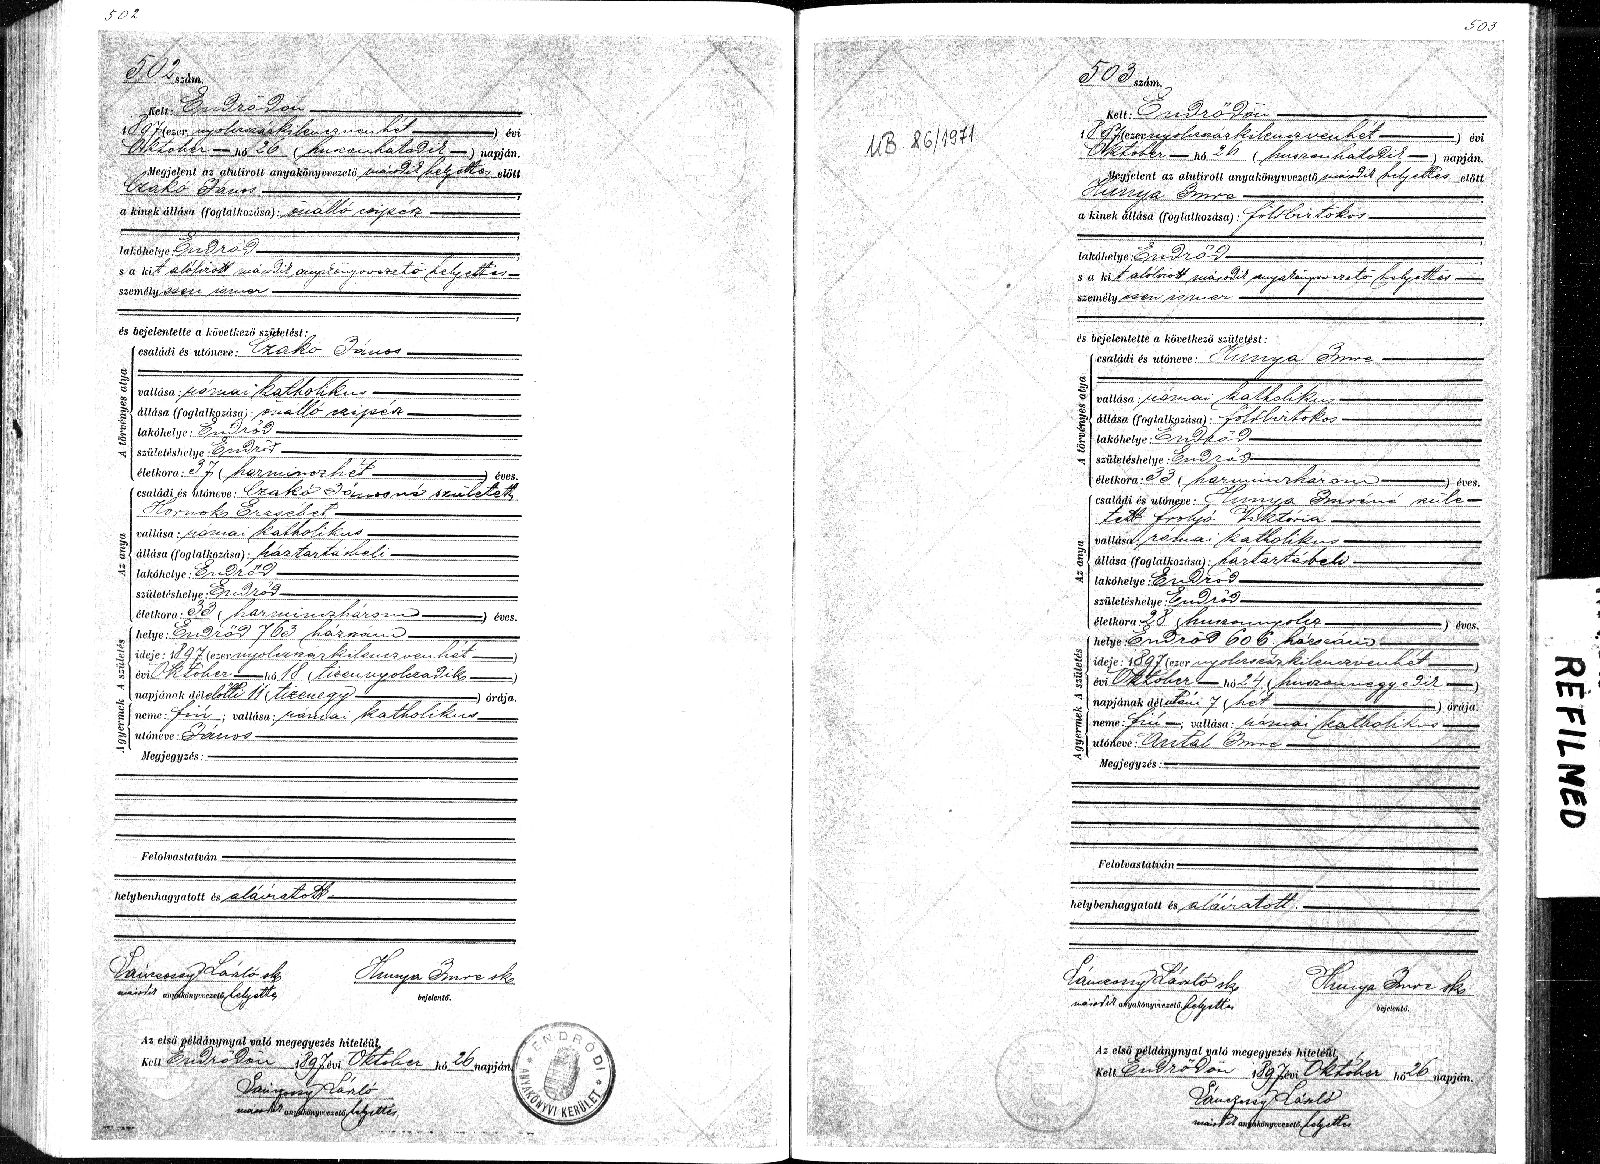 502
502 szám.
Kelt: Endrődön
1897 (ezer nyolczszázkilenczvenhét) évi
Október hó 26 (huszonhatodik) napján.
Megjelent az alulirott anyakönyvvezető második helyettes előtt
Czakó János
a kinek állása (foglalkozása): önálló czipész
lakóhelye: Endrőd
s a kit alólirott második anyakönyvvezető helyettes
személyesen ismer
és bejelentette a következő születést:
A törvényes atya
családi és utóneve: Czakó János
vallása: római katholikus
állása (foglalkozása): önálló czipész
lakóhelye: Endrőd
születéshelye: Endrőd
életkora: 37 (harminczhét) éves.
Az anya
családi és utóneve: Czakó Jánosné született
Kornok Erzsébet
vallása: római katholikus
állása (foglalkozása): háztartásbeli
lakóhelye: Endrőd
születéshelye: Endrőd
életkora: 33 (harminczhárom) éves.
A gyermek A születés
helye: Endrőd 763 házszám
ideje: 1897 (ezer nyolczszázkilenczvenhét)
évi Október hó 18 (tizennyolczadik)
napjának délelőtti 11 (tizenegy) órája.
neme: fiú; vallása: római katholikus
utóneve: János
Megjegyzés:
Felolvastatván
helybenhagyatott és aláiratott
László sk
második anyakönyvvezető helyettes
Hunya Imre sk
bejelentő.
Az első példánynyal való megegyezés hiteléül.
Kelt Endrődön 1897 évi Október hó 26 napján.
László
második anyakönyvvezető helyettes
ENDRŐDI
ANYAKÖNYVI KERÜLET
503
MB 86/1971
503 szám.
Kelt: Endrődön
1897 (ezer nyolczszázkilenczvenhét) évi
Október hó 26 (huszonhatodik) napján.
Megjelent az alulirott anyakönyvvezető második helyettes előtt
Hunya Imre
a kinek állása (foglalkozása): földbirtokos
lakóhelye: Endrőd
s a kit alólirott második anyakönyvvezető helyettes
személyesen ismer
és bejelentette a következő születést:
A törvényes atya
családi és utóneve: Hunya Imre
vallása: római katholikus
állása (foglalkozása): földbirtokos
lakóhelye: Endrőd
születéshelye: Endrőd
életkora: 33 (harminczhárom) éves.
Az anya
családi és utóneve: Hunya Imréné szüle-
tett Viktória
vallása: római katholikus
állása (foglalkozása): háztartásbeli
lakóhelye: Endrőd
születéshelye: Endrőd
életkora: 28 (huszonnyolcz) éves.
A gyermek A születés
helye: Endrőd 606 házszám
ideje: 1897 (ezer nyolczszázkilenczvenhét)
évi Október hó 24 (huszonnegyedik)
napjának délutáni 7 (hét) órája.
neme: fiú; vallása: római katholikus
utóneve: Antal Imre
Megjegyzés:
Felolvastatván
helybenhagyatott és aláiratott.
László sk
második anyakönyvvezető helyettes
Hunya Imre sk
bejelentő.
Az első példánynyal való megegyezés hiteléül.
Kelt Endrődön 1897 évi Október hó 26 napján.
László
második anyakönyvvezető helyettes
REFILMED